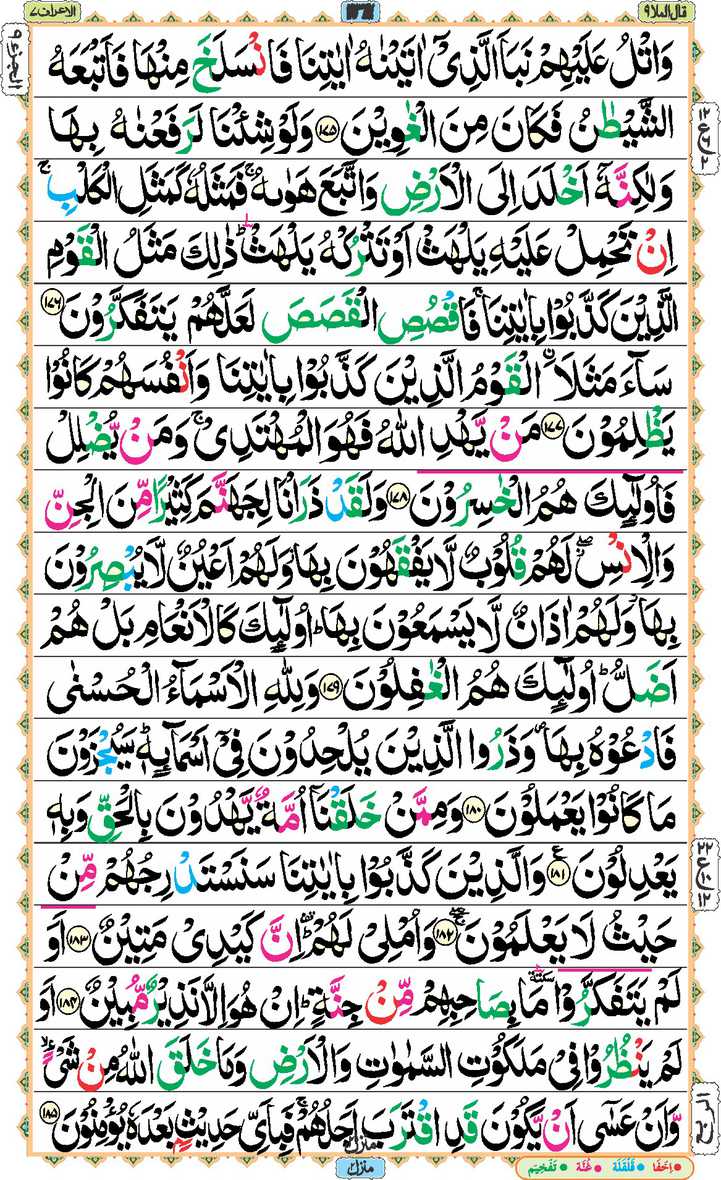 قال الملا ٩
١٧٤
الاعراف ٧
وَاتْلُ عَلَيْهِمْ نَبَاَ الَّذِیْۤ اٰتَيْنٰهُ اٰيٰتِنَا فَانْسَلَخَ مِنْهَا فَاَتْبَعَهُ
الشَّيْطٰنُ فَكَانَ مِنَ الْغٰوِيْنَ ۝١٧٥ وَلَوْ شِئْنَا لَرَفَعْنٰهُ بِهَا
وَلٰكِنَّهٗۤ اَخْلَدَ اِلَى الْاَرْضِ وَاتَّبَعَ هَوٰىهُ ۚ فَمَثَلُهٗ كَمَثَلِ الْكَلْبِ ۚ
اِنْ تَحْمِلْ عَلَيْهِ يَلْهَثْ اَوْ تَتْرُكْهُ يَلْهَثْ ؕ ذٰلِكَ مَثَلُ الْقَوْمِ
الَّذِيْنَ كَذَّبُوْا بِاٰيٰتِنَا ۚ فَاقْصُصِ الْقَصَصَ لَعَلَّهُمْ يَتَفَكَّرُوْنَ ۝١٧٦
سَآءَ مَثَلَا ۨ الْقَوْمُ الَّذِيْنَ كَذَّبُوْا بِاٰيٰتِنَا وَاَنْفُسَهُمْ كَانُوْا
يَظْلِمُوْنَ ۝١٧٧ مَنْ يَّهْدِ اللّٰهُ فَهُوَ الْمُهْتَدِیْ ۚ وَمَنْ يُّضْلِلْ
فَاُولٰٓئِكَ هُمُ الْخٰسِرُوْنَ ۝١٧٨ وَلَقَدْ ذَرَاْنَا لِجَهَنَّمَ كَثِيْرًا مِّنَ الْجِنِّ
وَالْاِنْسِ ۖ لَهُمْ قُلُوْبٌ لَّا يَفْقَهُوْنَ بِهَا ؗ وَلَهُمْ اَعْيُنٌ لَّا يُبْصِرُوْنَ
بِهَا ؗ وَلَهُمْ اٰذَانٌ لَّا يَسْمَعُوْنَ بِهَا ؕ اُولٰٓئِكَ كَالْاَنْعَامِ بَلْ هُمْ
اَضَلُّ ؕ اُولٰٓئِكَ هُمُ الْغٰفِلُوْنَ ۝١٧٩ وَلِلّٰهِ الْاَسْمَآءُ الْحُسْنٰى
فَادْعُوْهُ بِهَا ۪ وَذَرُوا الَّذِيْنَ يُلْحِدُوْنَ فِیْۤ اَسْمَآئِهٖ ؕ سَيُجْزَوْنَ
مَا كَانُوْا يَعْمَلُوْنَ ۝١٨٠ وَمِمَّنْ خَلَقْنَاۤ اُمَّةٌ يَّهْدُوْنَ بِالْحَقِّ وَبِهٖ
يَعْدِلُوْنَ ۝١٨١ ع وَالَّذِيْنَ كَذَّبُوْا بِاٰيٰتِنَا سَنَسْتَدْرِجُهُمْ مِّنْ
حَيْثُ لَا يَعْلَمُوْنَ ۝١٨٢ وَاُمْلِیْ لَهُمْ ؕ اِنَّ كَيْدِیْ مَتِيْنٌ ۝١٨٣ اَوَ
لَمْ يَتَفَكَّرُوْا سكتة مَا بِصَاحِبِهِمْ مِّنْ جِنَّةٍ ؕ اِنْ هُوَ اِلَّا نَذِيْرٌ مُّبِيْنٌ ۝١٨٤ اَوَ
لَمْ يَنْظُرُوْا فِیْ مَلَكُوْتِ السَّمٰوٰتِ وَالْاَرْضِ وَمَا خَلَقَ اللّٰهُ مِنْ شَیْءٍ ۙ
وَّاَنْ عَسٰۤى اَنْ يَّكُوْنَ قَدِ اقْتَرَبَ اَجَلُهُمْ ۚ فَبِاَیِّ حَدِيْثٍۭ بَعْدَهٗ يُؤْمِنُوْنَ ۝١٨٥
منزل ٢
منزل ٢
اِخْفَا قَلْقَلَة غُنَّة تَفْخِيْم